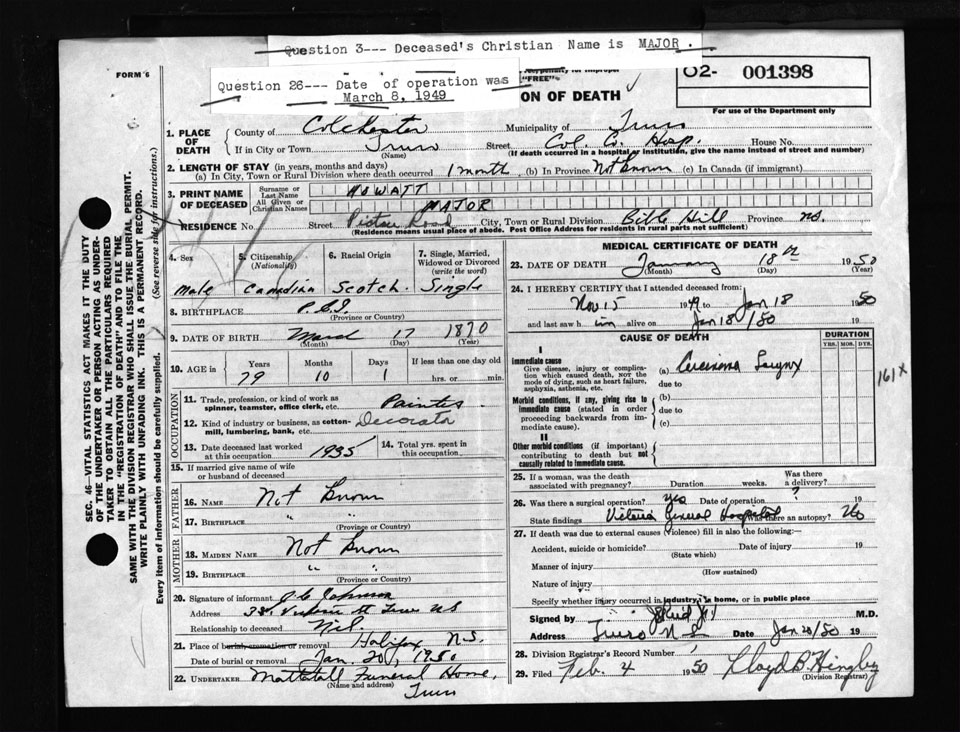 Question 3--- Deceased's Christian Name is MAJOR .
Question 26--- Date of operation was
March 8, 1949
FORM 6
"FREE"
ON OF DEATH
O2- 001398
For use of the Department only
1. PLACE OF DEATH
County of Colchester Municipality of Truro
If in City or Town Truro Street Col. Co. Hosp. House No.
(Name) (If death occurred in a hospital or institution, give the name instead of street and number)
2. LENGTH OF STAY (in years, months and days)
(a) In City, Town or Rural Division where death occurred 1 month (b) In Province Not Known (c) In Canada (if immigrant)
3. PRINT NAME OF DECEASED
Surname or Last Name HOWATT
All Given or Christian Names MAJOR
RESIDENCE No. Street Pictou Road City, Town or Rural Division Bible Hill Province NS.
(Residence means usual place of abode. Post Office Address for residents in rural parts not sufficient)
4. Sex Male
5. Citizenship (Nationality) Canadian
6. Racial Origin Scotch.
7. Single, Married, Widowed or Divorced (write the word) Single
8. BIRTHPLACE P.E.I.
(Province or Country)
9. DATE OF BIRTH 17 1870
(Month) (Day) (Year)
10. AGE in Years Months Days If less than one day old
79 10 1 hrs. or min.
OCCUPATION
11. Trade, profession, or kind of work as spinner, teamster, office clerk, etc. Painter
12. Kind of industry or business, as cotton-mill, lumbering, bank, etc. Decorator
13. Date deceased last worked at this occupation 1935
14. Total yrs. spent in this occupation
15. If married give name of wife or husband of deceased
FATHER
16. NAME Not Known
17. BIRTHPLACE " "
(Province or Country)
MOTHER
18. MAIDEN NAME Not Known
19. BIRTHPLACE " "
(Province or Country)
20. Signature of informant J C Johnson
Address 38 St Truro NS
Relationship to deceased Nil.
21. Place of burial, cremation or removal Halifax N.S.
Date of burial or removal Jan. 20, 1950
22. UNDERTAKER Mattatall Funeral Home,
(Name and address) Truro
MEDICAL CERTIFICATE OF DEATH
23. DATE OF DEATH January 18th 1950
(Month) (Day) (Year)
24. I HEREBY CERTIFY that I attended deceased from:
Nov 15 1949 to Jan 18 1950
and last saw him alive on Jan 18/50
CAUSE OF DEATH DURATION
YRS. MOS. DYS.
I
Immediate cause
Give disease, injury or complication which caused death, NOT the mode of dying, such as heart failure, asphyxia, asthenia, etc.
(a) Carcinoma Larynx
due to
161X
Morbid conditions, if any, giving rise to immediate cause (stated in order proceeding backwards from immediate cause).
(b)
due to
(c)
II
Other morbid conditions (if important) contributing to death but not causally related to immediate cause.
25. If a woman, was the death associated with pregnancy? Duration weeks. Was there a delivery?
26. Was there a surgical operation? yes Date of operation ? 19
State findings Victoria General Hospital Was there an autopsy? No
27. If death was due to external causes (violence) fill in also the following:
Accident, suicide or homicide? Date of injury 19
(State which)
Manner of injury
(How sustained)
Nature of injury
Specify whether injury occurred in industry, in home, or in public place
Signed by M.D.
Address Truro N S Date Jan 20/50 19
28. Division Registrar's Record Number
29. Filed Feb. 4 1950 Lloyd B Hingley
(Division Registrar)
SEC. 46—VITAL STATISTICS ACT MAKES IT THE DUTY
OF THE UNDERTAKER OR PERSON ACTING AS UNDER-
TAKER TO OBTAIN ALL THE PARTICULARS REQUIRED
IN THE "REGISTRATION OF DEATH" AND TO FILE THE
SAME WITH THE DIVISION REGISTRAR WHO SHALL ISSUE THE BURIAL PERMIT.
WRITE PLAINLY WITH UNFADING INK. THIS IS A PERMANENT RECORD.
Every item of information should be carefully supplied. (See reverse side for instructions.)